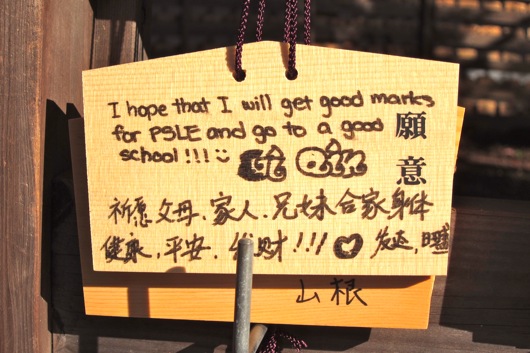 I hope that I will get good marks
for PSLE and go to a good
school!!!
願意
祈愿父母.家人.兄妹合家身体
健康,平安.发财!!!
山根